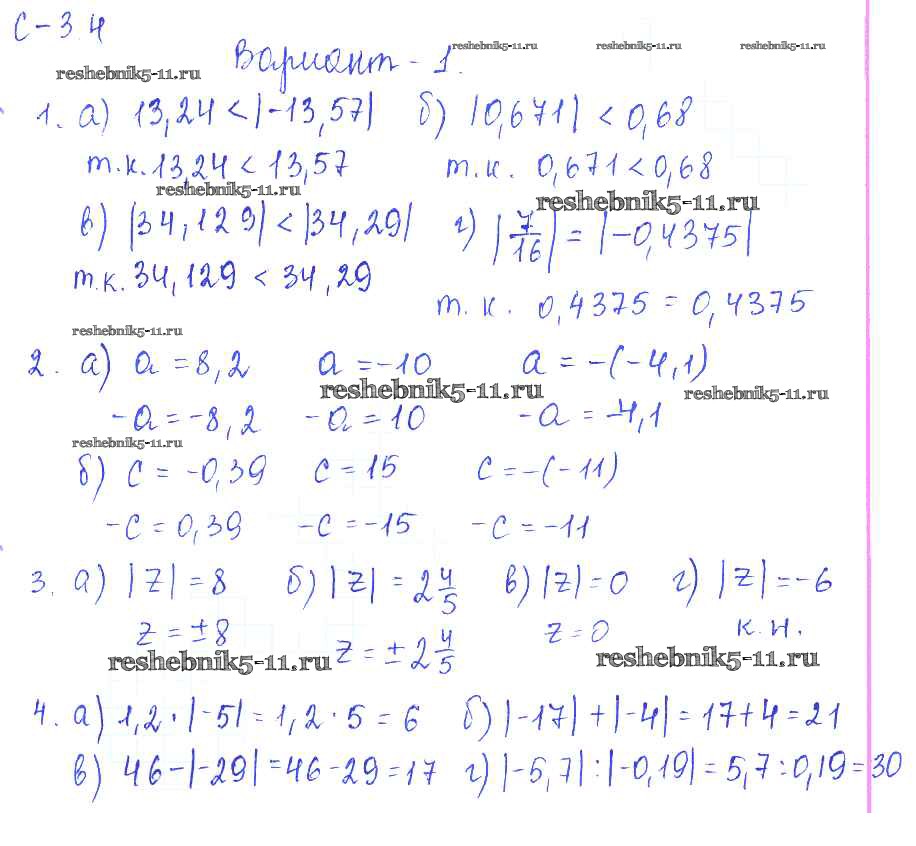 С-34
Вариант-1.
reshebnik5-11.ru reshebnik5-11.ru reshebnik5-11.ru
reshebnik5-11.ru
1. а) 13,24 < |-13,57| б) |0,671| < 0,68
т.к. 13,24 < 13,57 т.к. 0,671 < 0,68
reshebnik5-11.ru reshebnik5-11.ru
в) |34,129| < |34,29| г) |7/16| = |-0,4375|
т.к. 34,129 < 34,29
т.к. 0,4375 = 0,4375
reshebnik5-11.ru
2. а) a = 8,2 a = -10 a = -(-4,1)
reshebnik5-11.ru reshebnik5-11.ru
-a = -8,2 -a = 10 -a = -4,1
reshebnik5-11.ru
б) c = -0,39 c = 15 c = -(-11)
-c = 0,39 -c = -15 -c = -11
3. а) |z| = 8 б) |z| = 2 4/5 в) |z| = 0 г) |z| = -6
z = ±8 z = ±2 4/5 z = 0 к.н.
reshebnik5-11.ru reshebnik5-11.ru
4. а) 1,2 · |-5| = 1,2 · 5 = 6 б) |-17| + |-4| = 17 + 4 = 21
в) 46 - |-29| = 46 - 29 = 17 г) |-5,7| : |-0,19| = 5,7 : 0,19 = 30